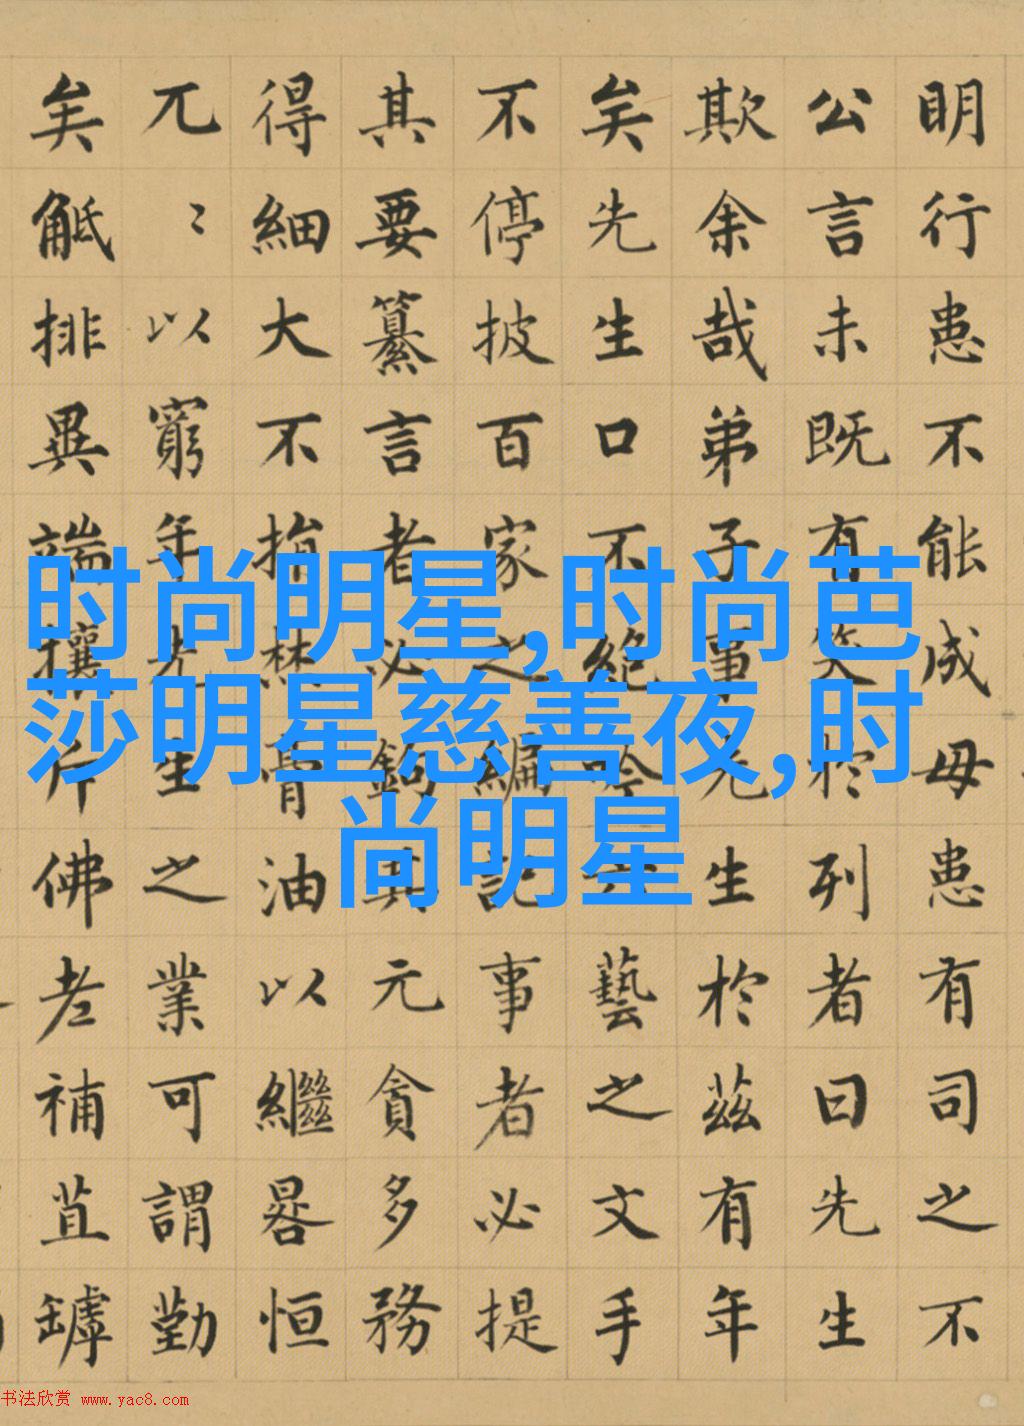 时尚明星,时尚芭
莎明星慈善夜,时
尚明星
明行患不能成毋患有司之不
公言未既有笑於列者曰先生
欺余哉弟子事先生於茲有年
矣先生口不絕吟六藝之文手
不停披百家之編記事者必提
其要纂言者必鉤其元貪多務
得細大不捐焚膏油以繼晷恒
兀〻以窮年先生之業可謂勤
矣觝排異端攘斥佛老補苴罅
书法欣赏 www.yac8.com